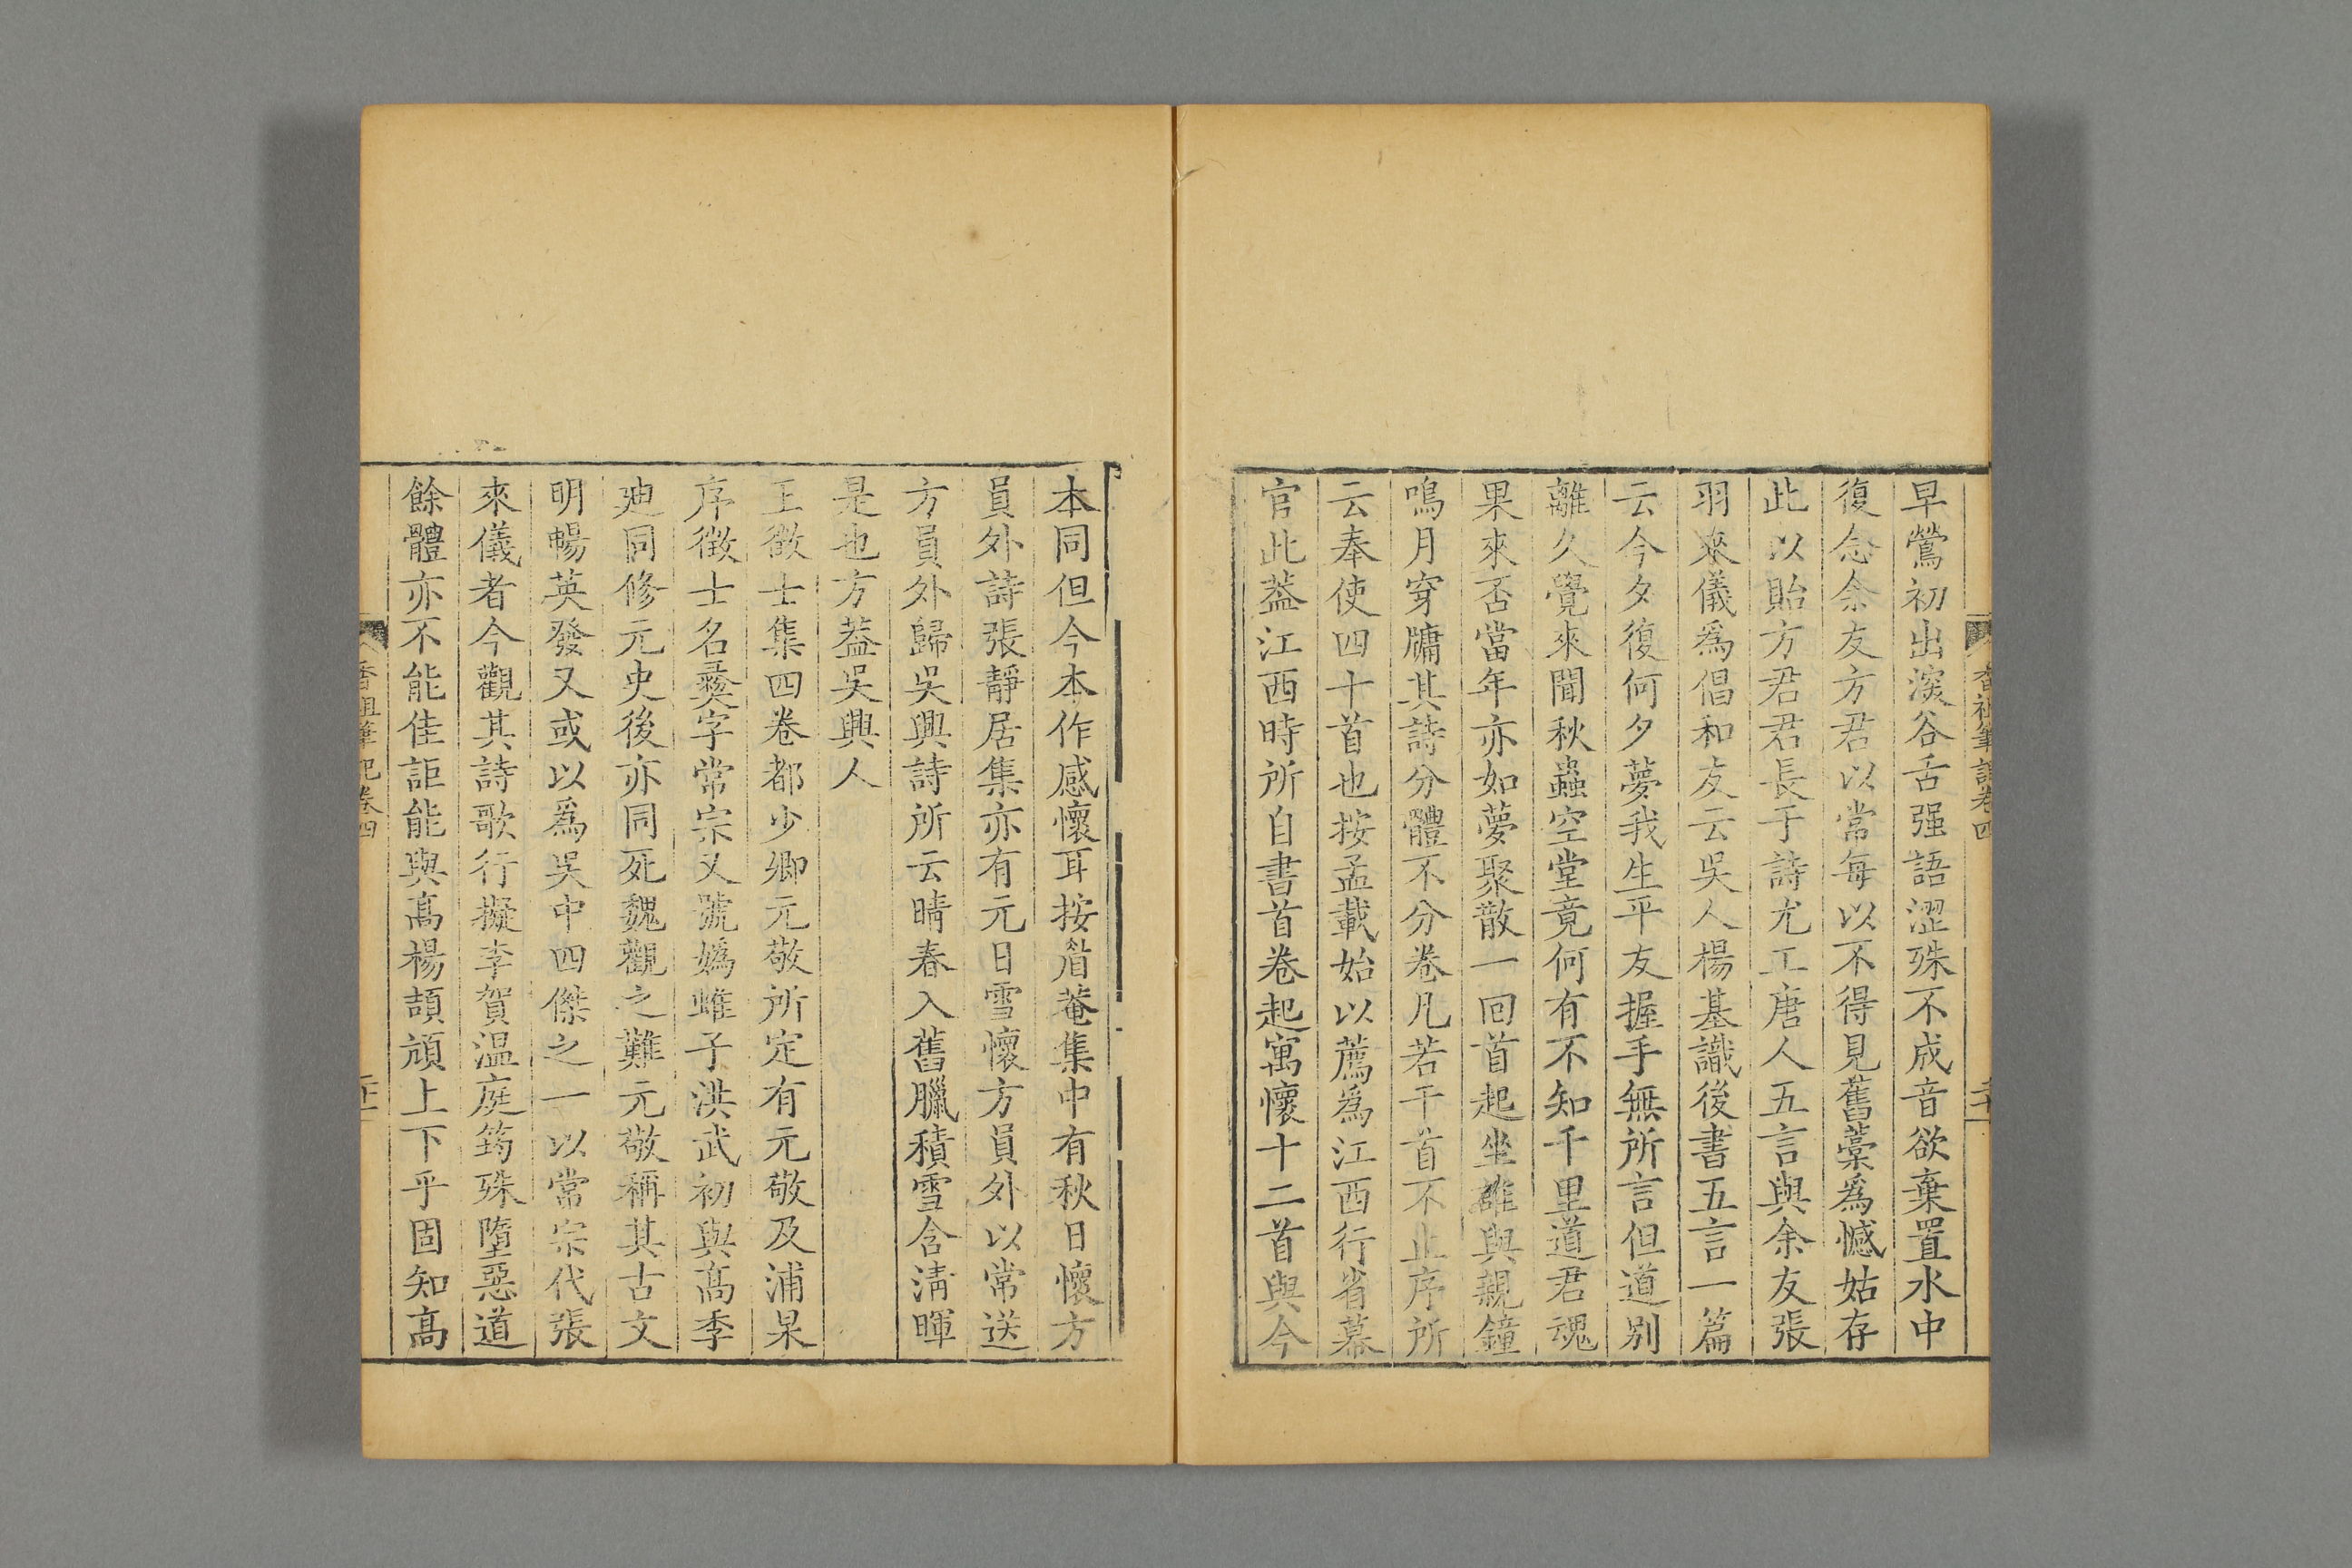 早鶯初出深谷舌强語澀殊不成音欲棄置水中
復念余友方君以常每以不得見舊藁爲憾姑存
此以貽方君君長于詩尤工唐人五言與余友張
羽來儀爲倡和友云吳人楊基識後書五言一篇
云今夕復何夕夢我生平友握手無所言但道别
離久覺來聞秋蟲空堂竟何有不知千里道君魂
果來否當年亦如夢聚散一回首起坐誰與親鐘
鳴月穿牗其詩分體不分卷凡若干首不止序所
云奉使四十首也按孟載始以薦爲江西行省幕
官此葢江西時所自書首卷起寓懷十二首與今
香祖筆記卷四
本同但今本作感懷耳按眉菴集中有秋日懷方
員外詩張靜居集亦有元日雪懷方員外以常送
方員外歸吳興詩所云晴春入舊臘積雪含淸暉
是也方葢吳興人
王徵士集四卷都少卿元敬所定有元敬及浦杲
序徵士名彝字常宗又號嬀蜼子洪武初與高季
廸同修元史後亦同死魏觀之難元敬稱其古文
明暢英發又或以爲吳中四傑之一以常宗代張
來儀者今觀其詩歌行擬李賀溫庭筠殊墮惡道
餘體亦不能佳詎能與高楊頡頏上下乎固知高
香祖筆記卷四